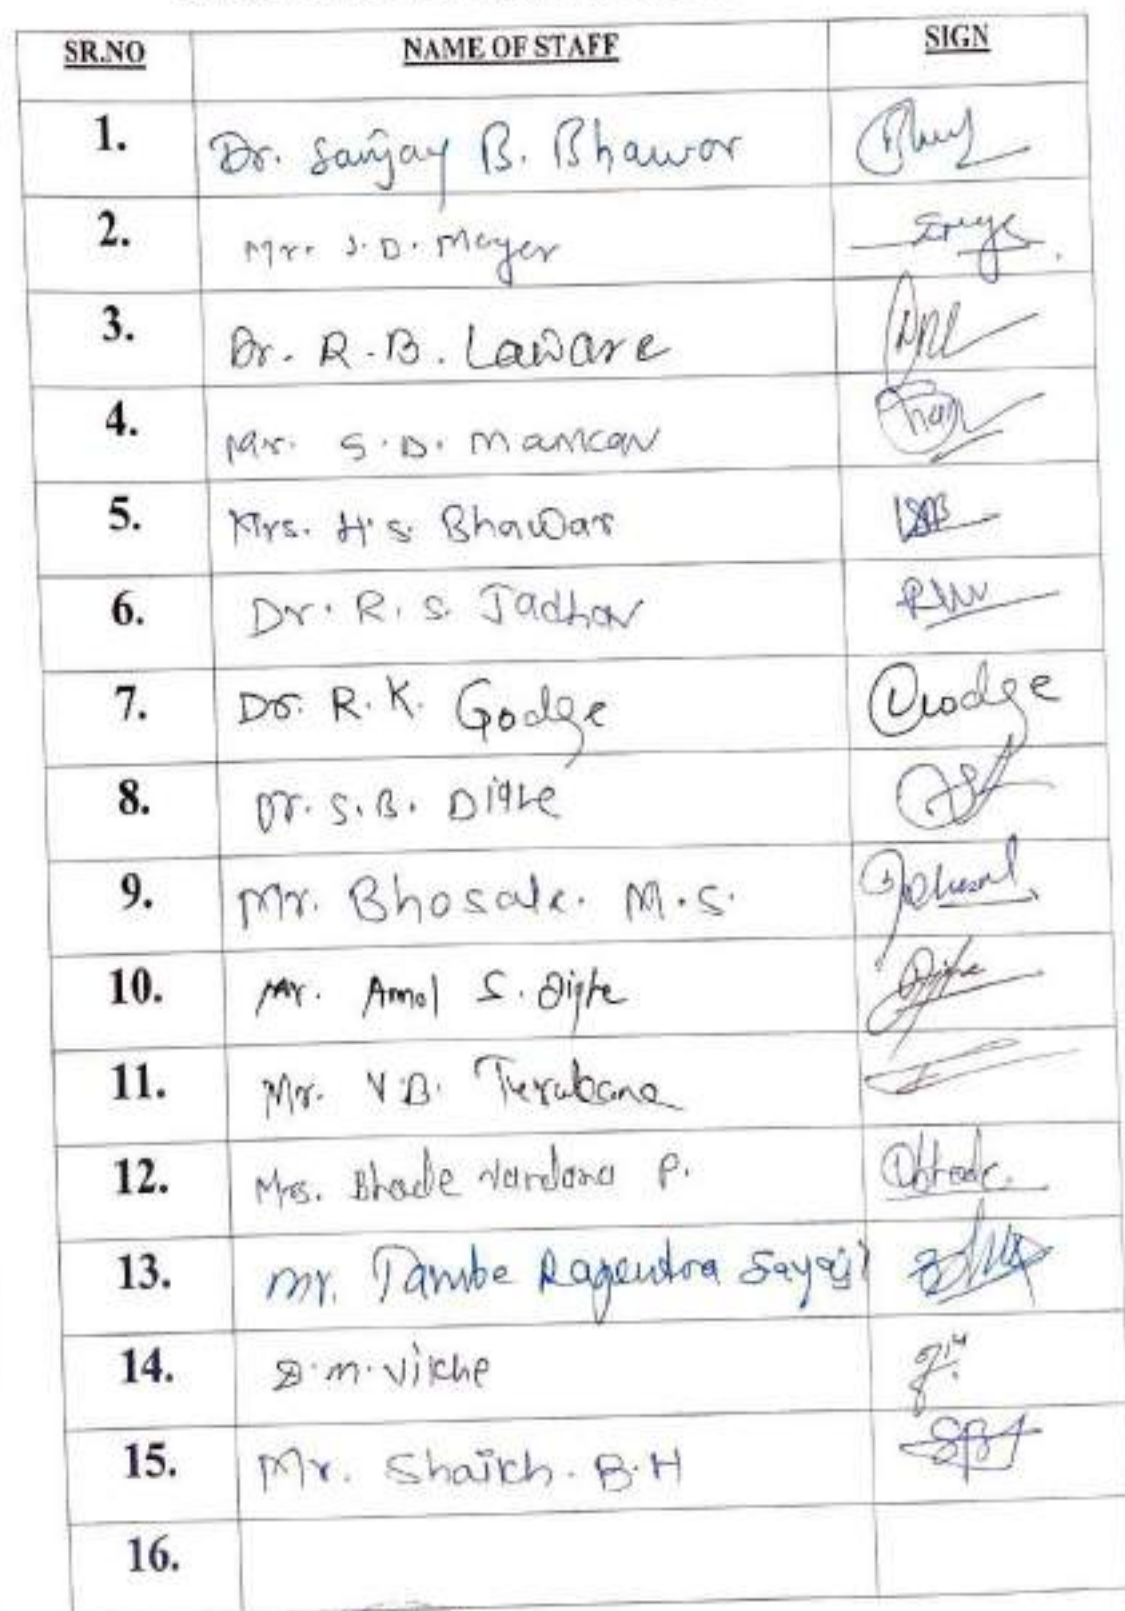 SR.NO NAME OF STAFF SIGN
1. Dr. Sanjay B. Bhawor
2. Mr. S.D. Mayer
3. Dr. R.B. Laware
4. Mr. S.D. Mankar
5. Mrs. H.S. Bhawar
6. Dr. R.S. Jadhav
7. Dr. R.K. Godge Godge
8. Dr. S.B. Dighe
9. Mr. Bhosale. M.S.
10. Mr. Amol S. Dighe
11. Mr. V.B.
12. Mrs. Bhade Vandana P.
13. Mr. Tambe Ragendra Sayaji
14. D.M. Vikhe
15. Mr. Shaikh. B.H
16.